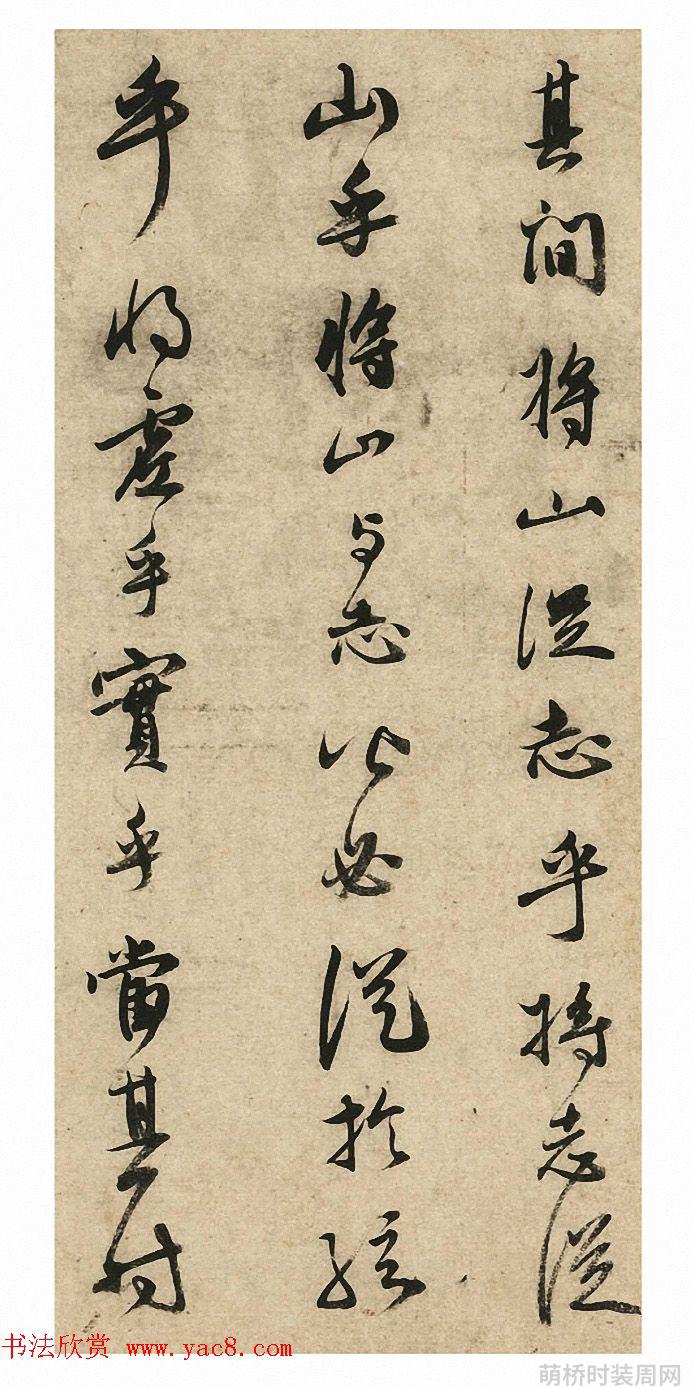 其間將山從志乎將志從
山乎將山与志必從於絃
乎將虛乎實乎當其
书法欣赏 www.yac8.com
萌桥时装周网